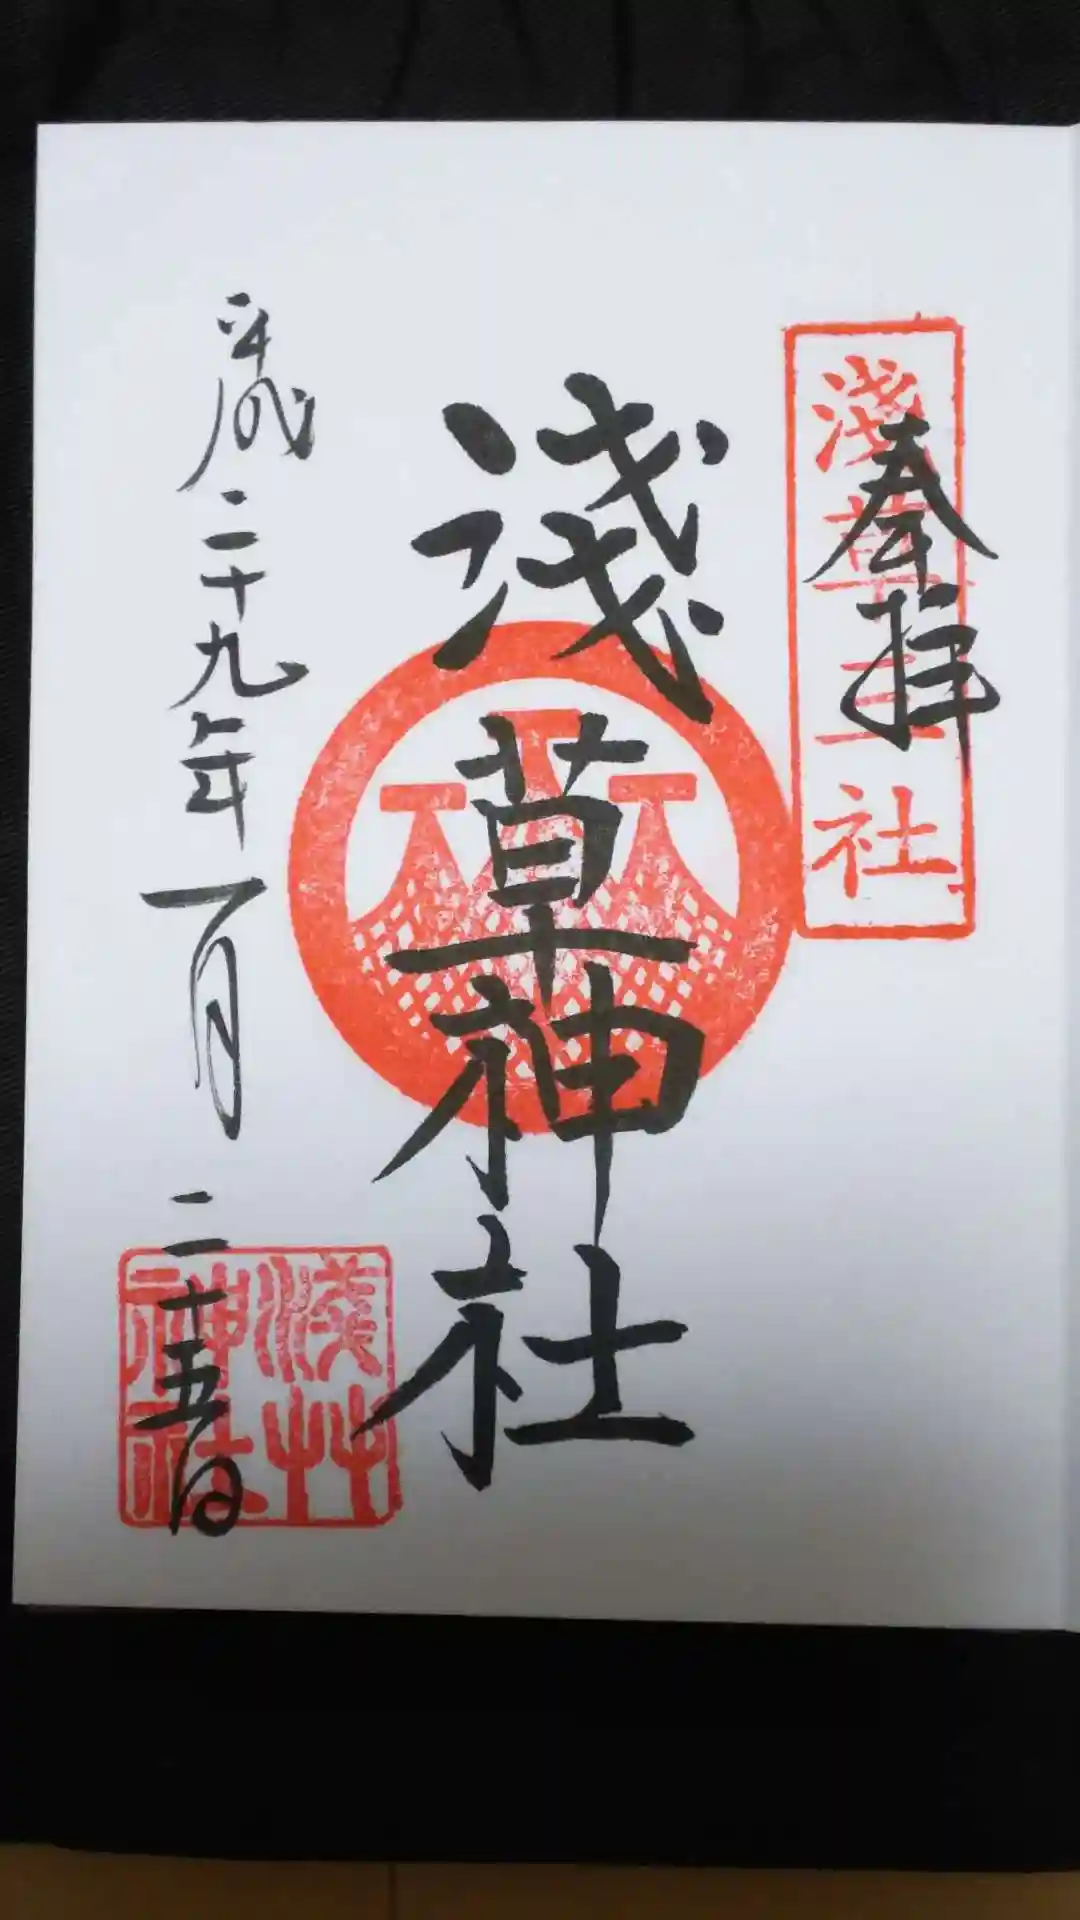 奉拝
淺草三社
淺草神社
平成二十九年一月二十五日
淺艸
神社